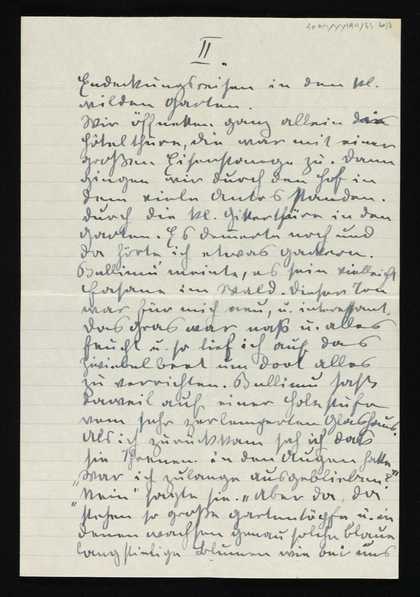 II.
Endeckungsreisen in den kl.
wilden Garten.
Wir öffneten ganz allein die
Hoteltüre, die war mit einer
großen Eisenstange zu. Dann
gingen wir durch den Hof in
dem viele Autos standen.
durch die kl. Gittertüre in den
Garten. Es demerte noch und
da hörte ich etwas gackern.
meinte, es sein vielleicht
Fasane im Wald. Dieser Ton
war für mich neu, u. interessant.
Das Gras war naß u. alles
feucht u. so lief ich auf das
Zwiebelbeet um dort alles
zu verrichten. saß
daweil auf einer Holzstufe
vom sehr zerlemperten Glashaus.
Als ich zurückkam sah ich daß
sie Trenen in den Augen hatte
„War ich zulange ausgeblieben?"
„Nein" sagte sie. „Aber da, da
stehen so große Gartentöpfe u. in
denen wachsen genau solche blaue
langstielige Blumen wie bei uns